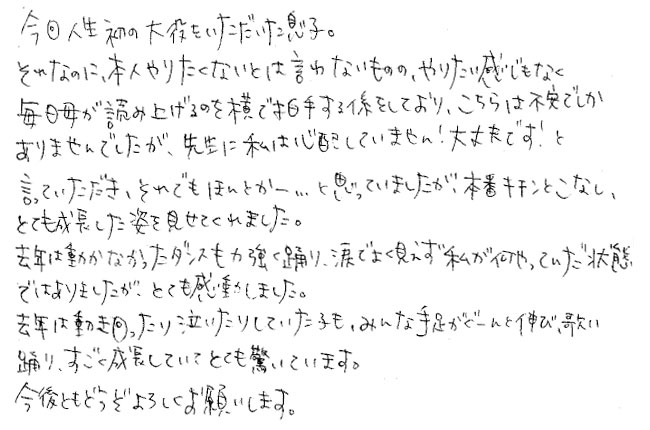 今回人生初の大役をいただいた息子。
それなのに、本人やりたくないとは言わないものの、やりたい感じもなく
毎日母が読み上げるのを横で拍手する係をしており、こちらは不安でしか
ありませんでしたが、先生に私は心配していません!大丈夫です!と
言っていただき、それでもほんとかー…と思っていましたが、本番キチンとこなし、
とても成長した姿を見せてくれました。
去年は動かなかったダンスも力強く踊り、涙でよく見えず私が何やっていた状態
ではありましたが、とても感動しました。
去年は動き回ったり泣いたりしていた子も、みんな手足がぐーんと伸び、歌い
踊り、すごく成長していてとても驚いています。
今後ともどうぞよろしくお願いします。